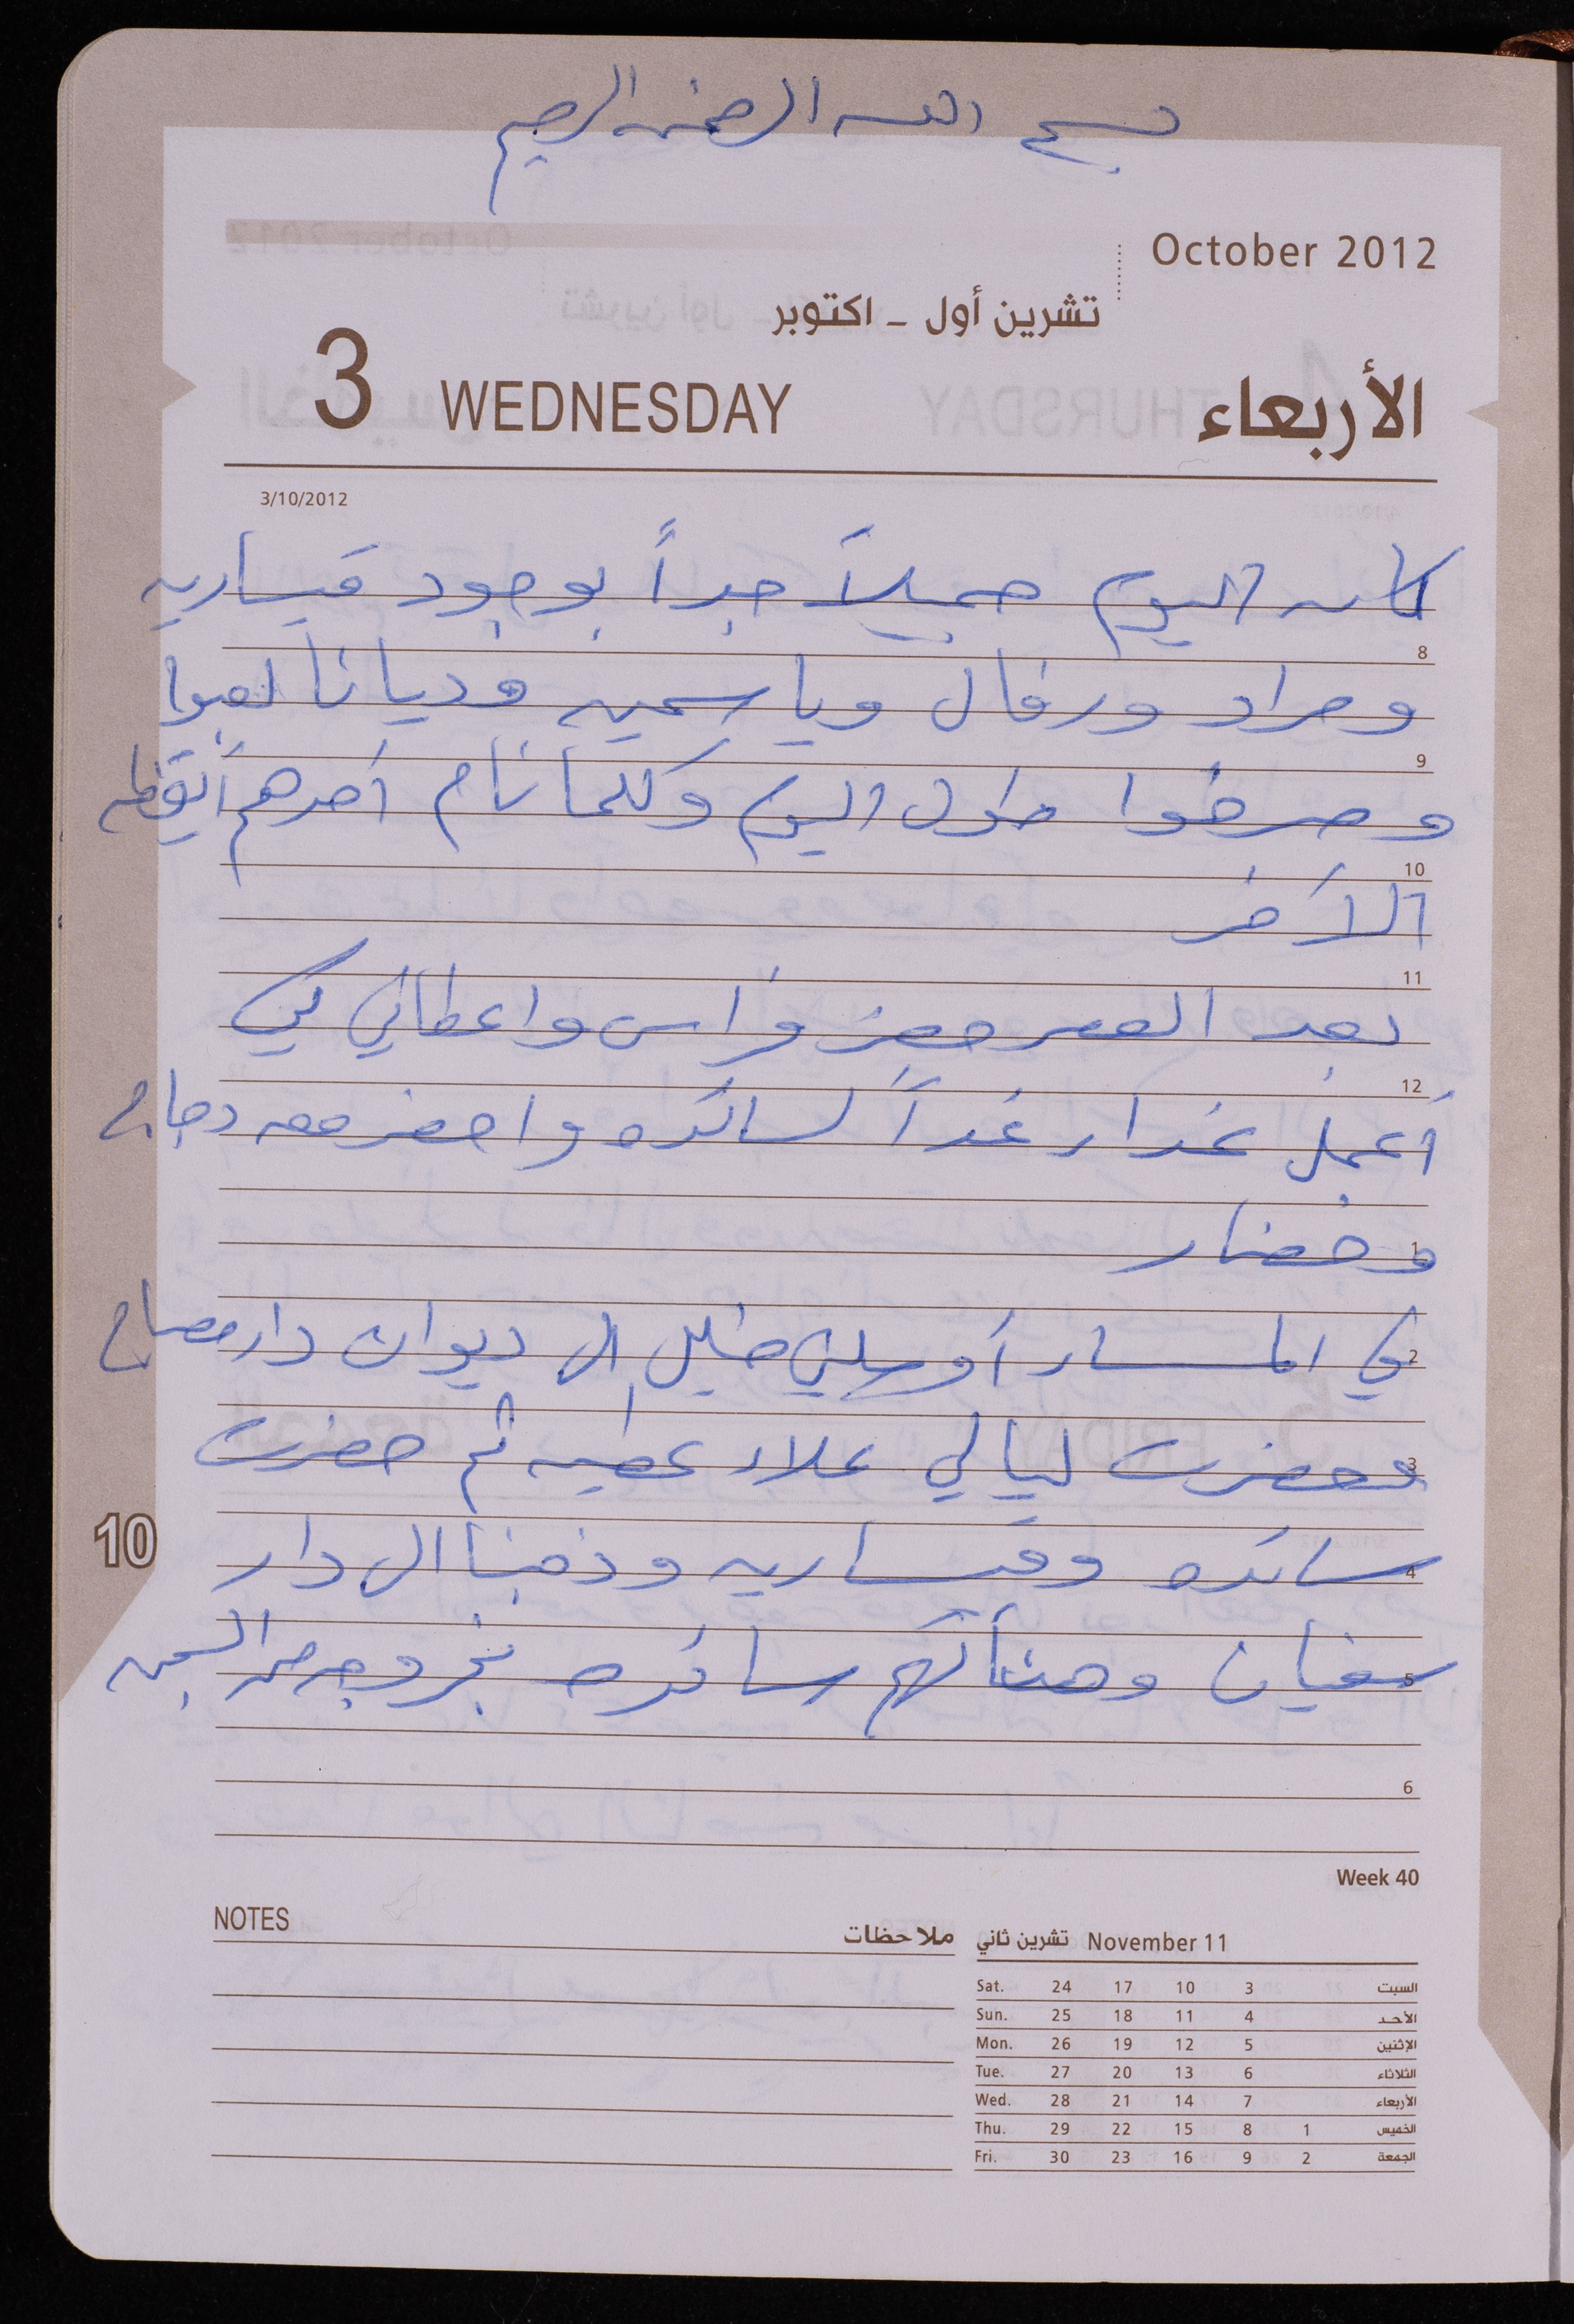 بسم الله الرحمن الرحيم
October 2012
تشرين أول - اكتوبر
3 WEDNESDAY الأربعاء
3/10/2012
كان اليوم جميلاً جداً بوجود قيساريه
8
ومراد ورفال وياسمين وديانا لعبوا
9
وصرخوا طول اليوم وكلما نام أحدهم أيقظه
10
الآخر
11
بعد العصر حضر فراس واعطاني لكي
12
أعمل غداء غداً لسائده واحضر معه دجاج
1
وخضار
2
في المساء أوصلني خليل الى ديوان دار مصلح
3
وحضرت ليالي علاء عطيه ثم حضرت
10
4
سائده وقيساريه وذهبنا الى دار
5
سفيان وهنأتهم سائده بخروجه من السجن
6
Week 40
NOTES ملاحظات
تشرين ثاني November 11
Sat. 24 17 10 3 السبت
Sun. 25 18 11 4 الأحد
Mon. 26 19 12 5 الإثنين
Tue. 27 20 13 6 الثلاثاء
Wed. 28 21 14 7 الأربعاء
Thu. 29 22 15 8 1 الخميس
Fri. 30 23 16 9 2 الجمعة